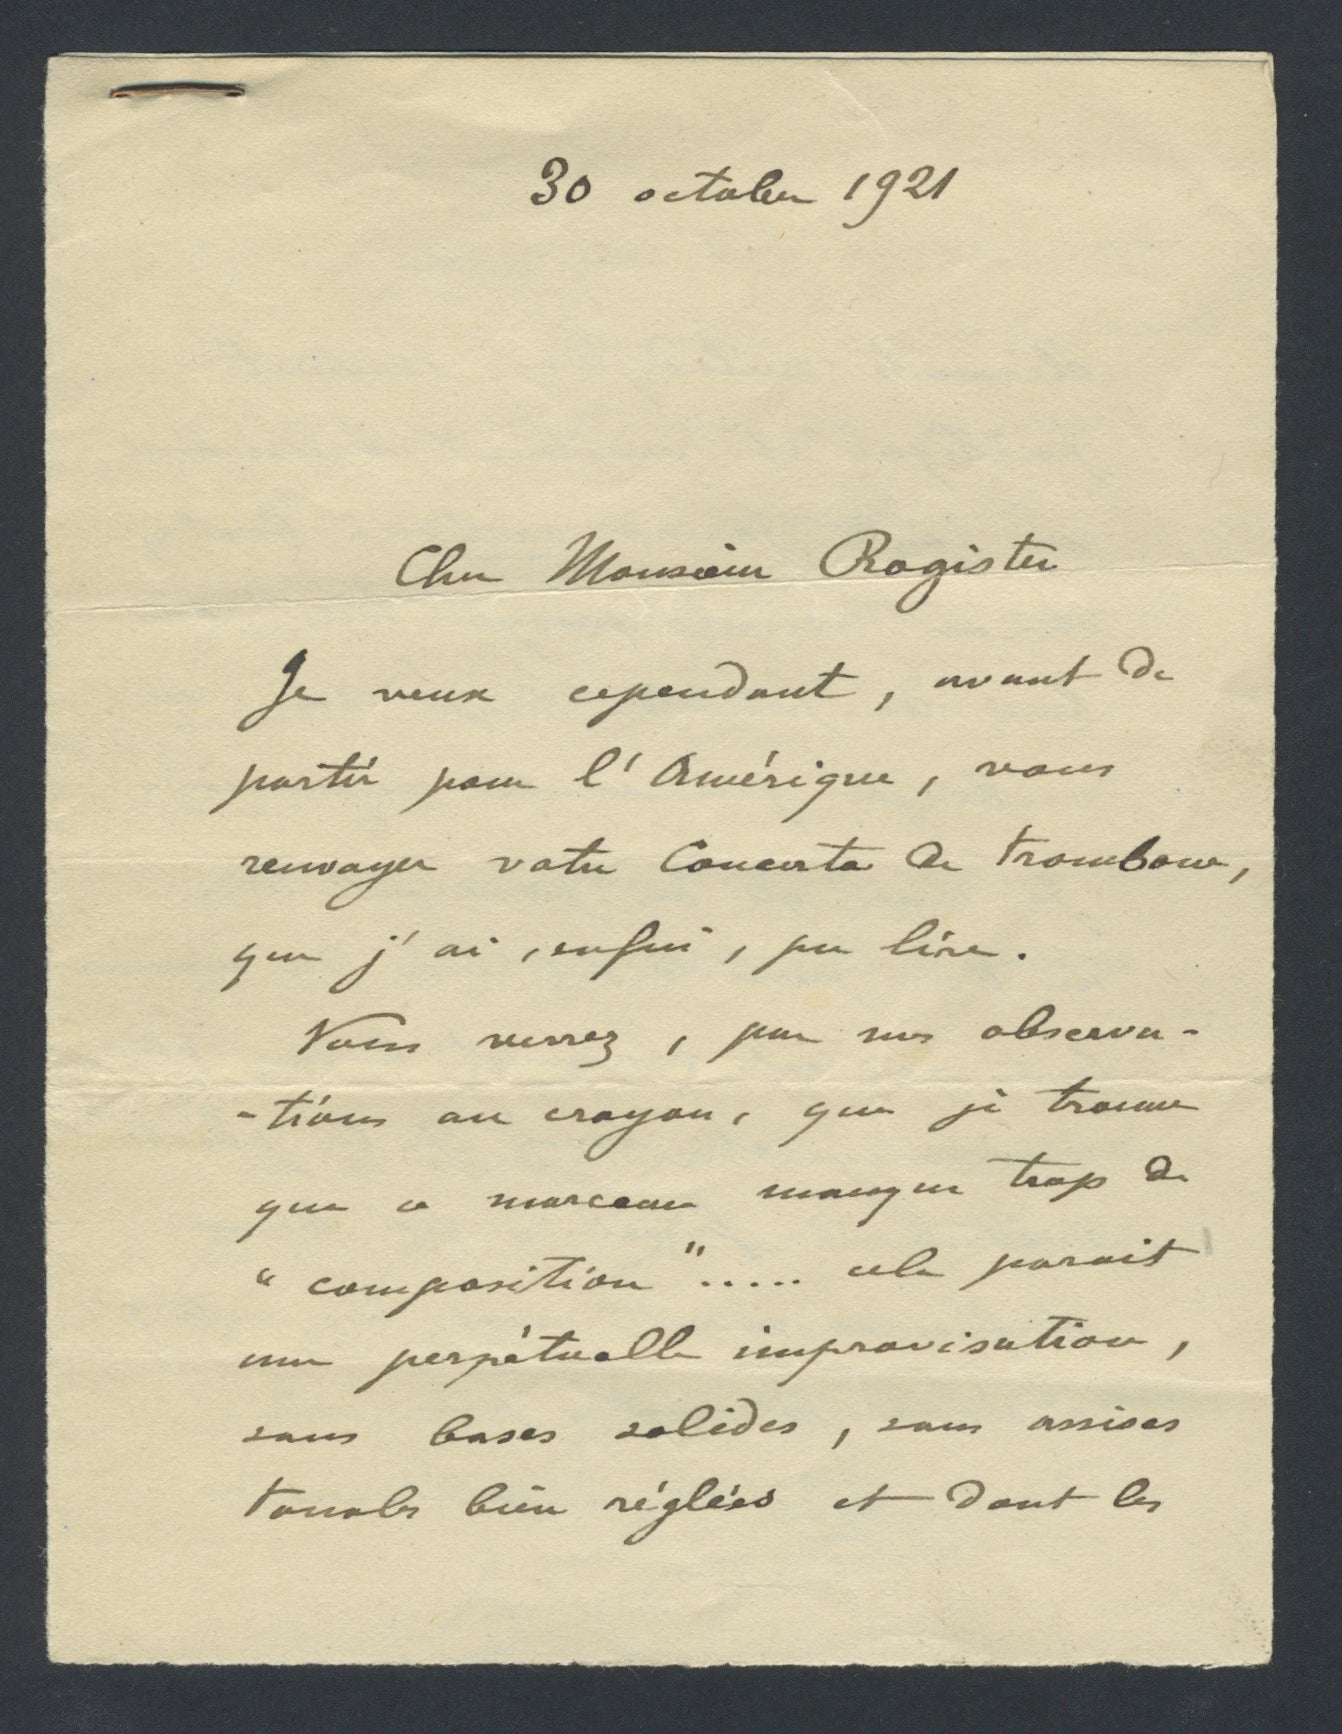 30 octobre 1921
Cher Monsieur Rogister
Je veux cependant, avant de
partir pour l'Amérique, vous
renvoyer votre Concerto de trombone,
que j'ai, enfin, pu lire.
Vous verrez, par mes observa-
-tions au crayon, que je trouve
que ce morceau manque trop de
"composition"..... cela parait
une perpétuelle improvisation,
sans bases solides, sans assises
tonales bien réglées et dont les